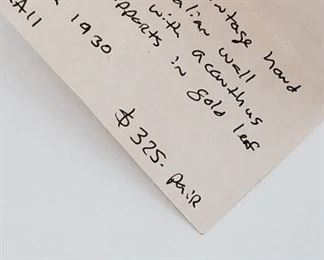 ntage hand
alian wall
with acanthus
pports in gold leaf
1930
$325- PAIR